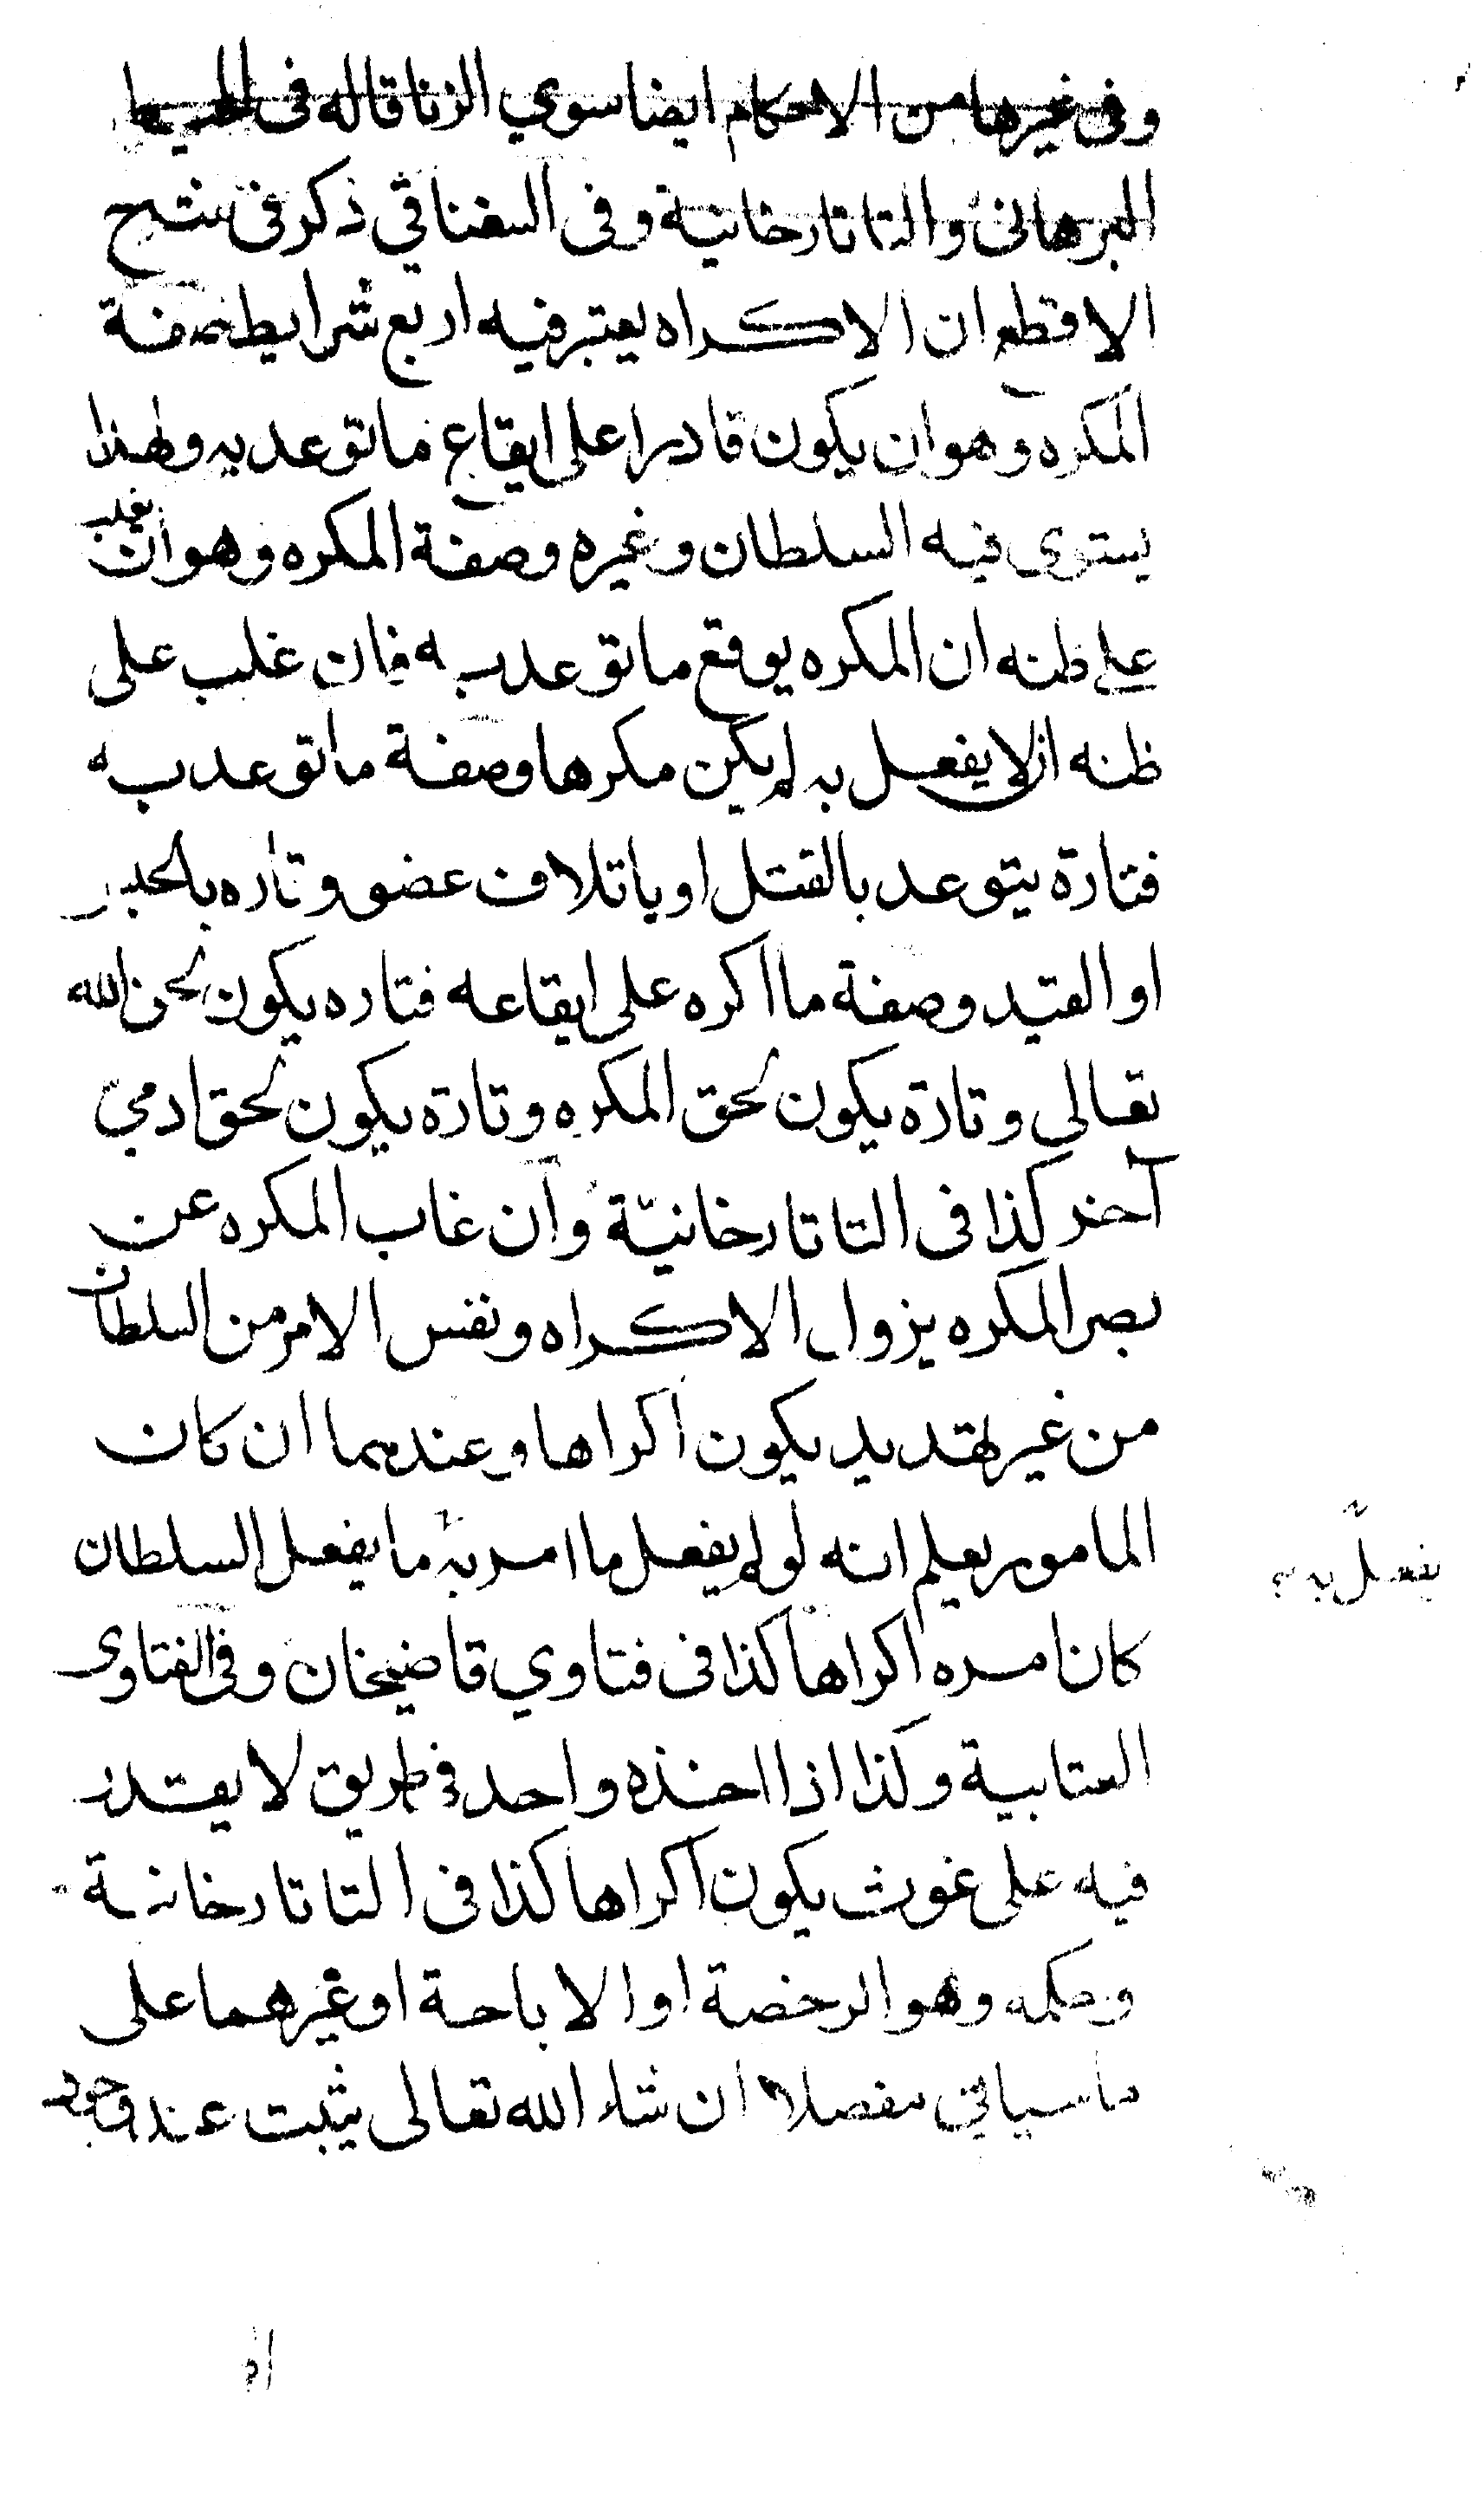 وفى غيرها من الاحكام ايضا سوي الزنا قاله فى المحيط
البرهانى والتاتارخانية وفى السغناقي ذكر فى شرح
الاقطع ان الاكراه يعتبر فيه اربع شرايط صفة
المكره وهو ان يكون قادرا على ايقاع ما توعد به ولهذا
يستوى فيه السلطان وغيره وصفة المكره وهو ان يغلب
على ظنه ان المكره يوقع ما توعد به فان غلب على
ظنه انه لا يفعل به لم يكن مكرها وصفة ما توعد به
فتارة يتوعد بالقتل او باتلاف عضو وتاره بالحبس
او القيد وصفة ما اكره على ايقاعه فتاره يكون لحق الله
تعالى وتارة يكون لحق المكره وتارة يكون لحق ادمي
آخر كذا فى التاتارخانيّة وان غاب المكره عن
بصر المكره يزول الاكراه ونفس الامر من السلطان
من غير تهديد يكون اكراها وعندهما ان كان
المامور يعلم انه لو لم يفعل ما امر به ما يفعل السلطان
يفعل به
كان امره اكراها كذا فى فتاوي قاضيخان وفى الفتاوى
العتابية وكذا اذا اخذه واحد فى طريق لا يقدر
فيه على غوث يكون اكراها كذا فى التاتارخانية
وحكمه وهو الرخصة او الاباحة او غيرهما على
ما سياتي مفصلا ان شاء الله تعالى يثبت عند وجود